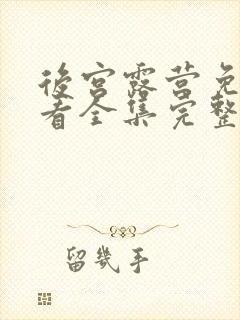 後宮露营免
看全集完整
留幾手